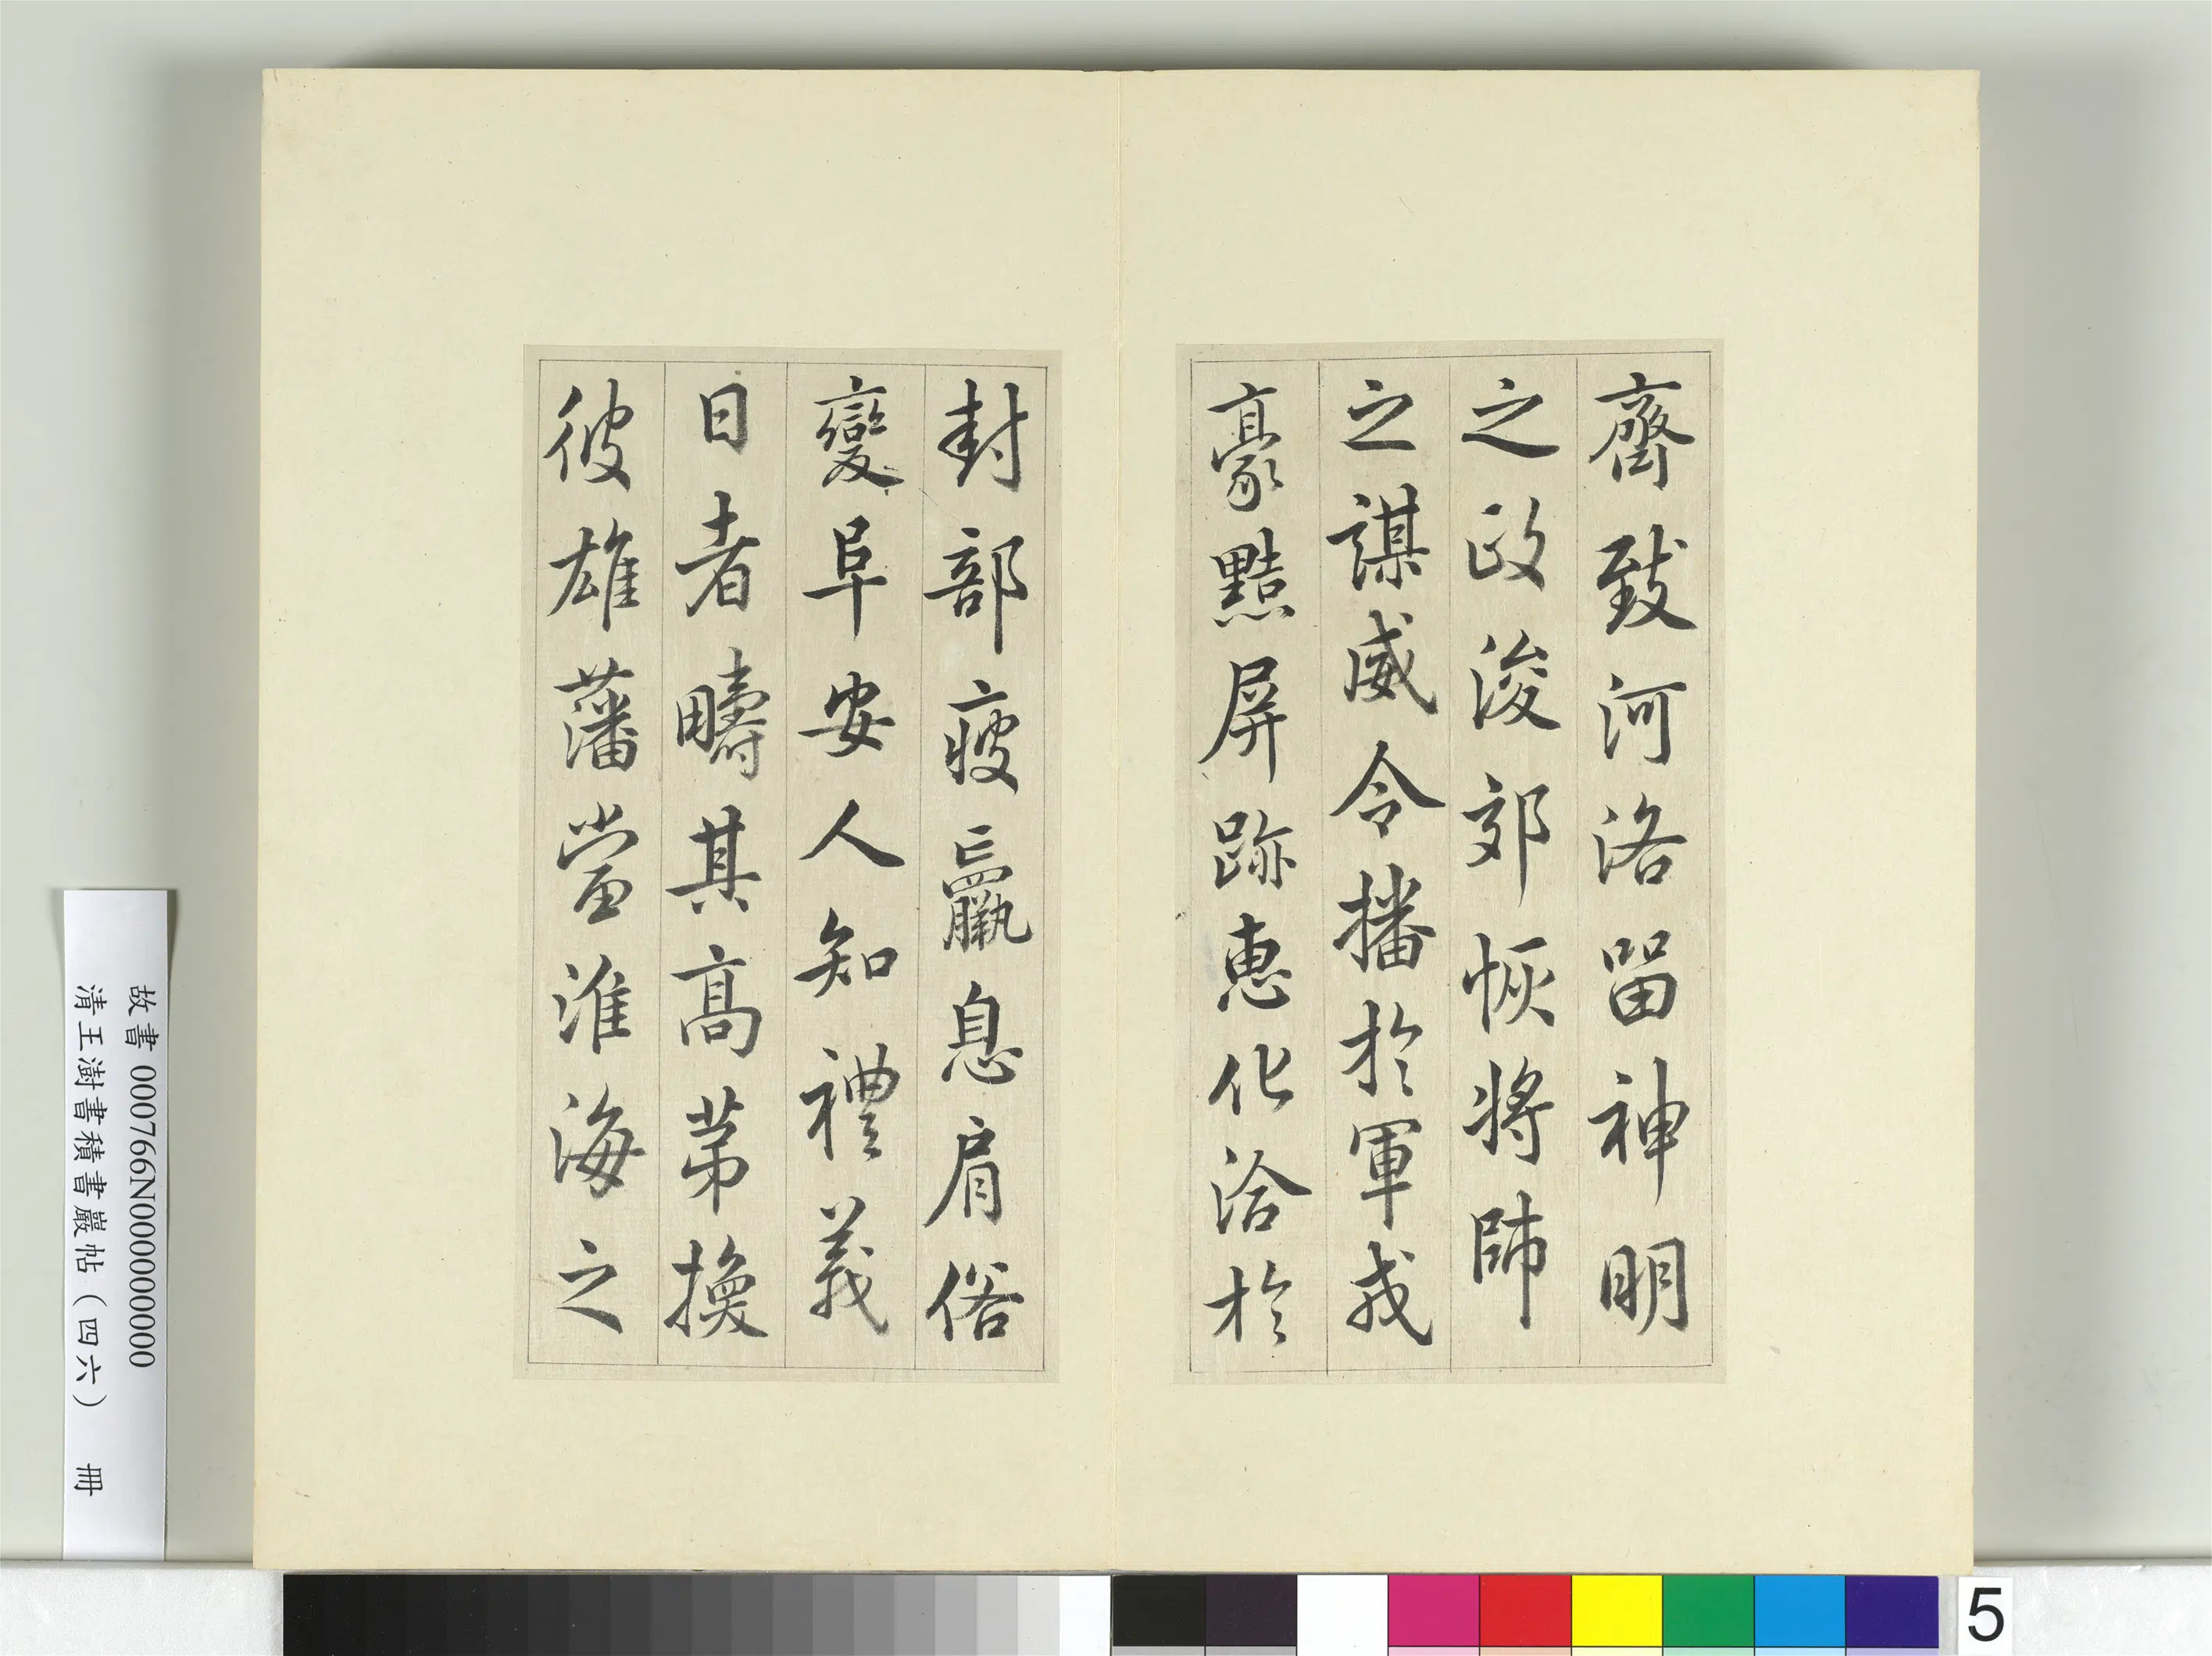 齊致河洛留神明
之政浚郊恢將帥
之謀威令播於軍戎
豪黠屏跡惠化洽於
封部疲羸息肩俗
變阜安人知禮義
日者疇其高第換
彼雄藩當淮海之
故書 000766N000000000
清王澍書積書巖帖（四六） 冊
5